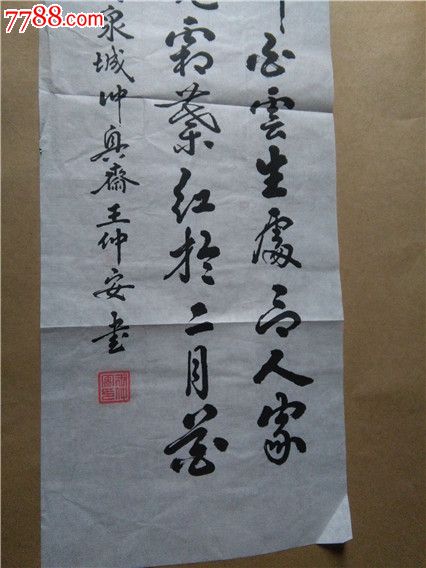 7788.com
白雲生處有人家
霜葉紅於二月花
泉城沖真齋王仲安書